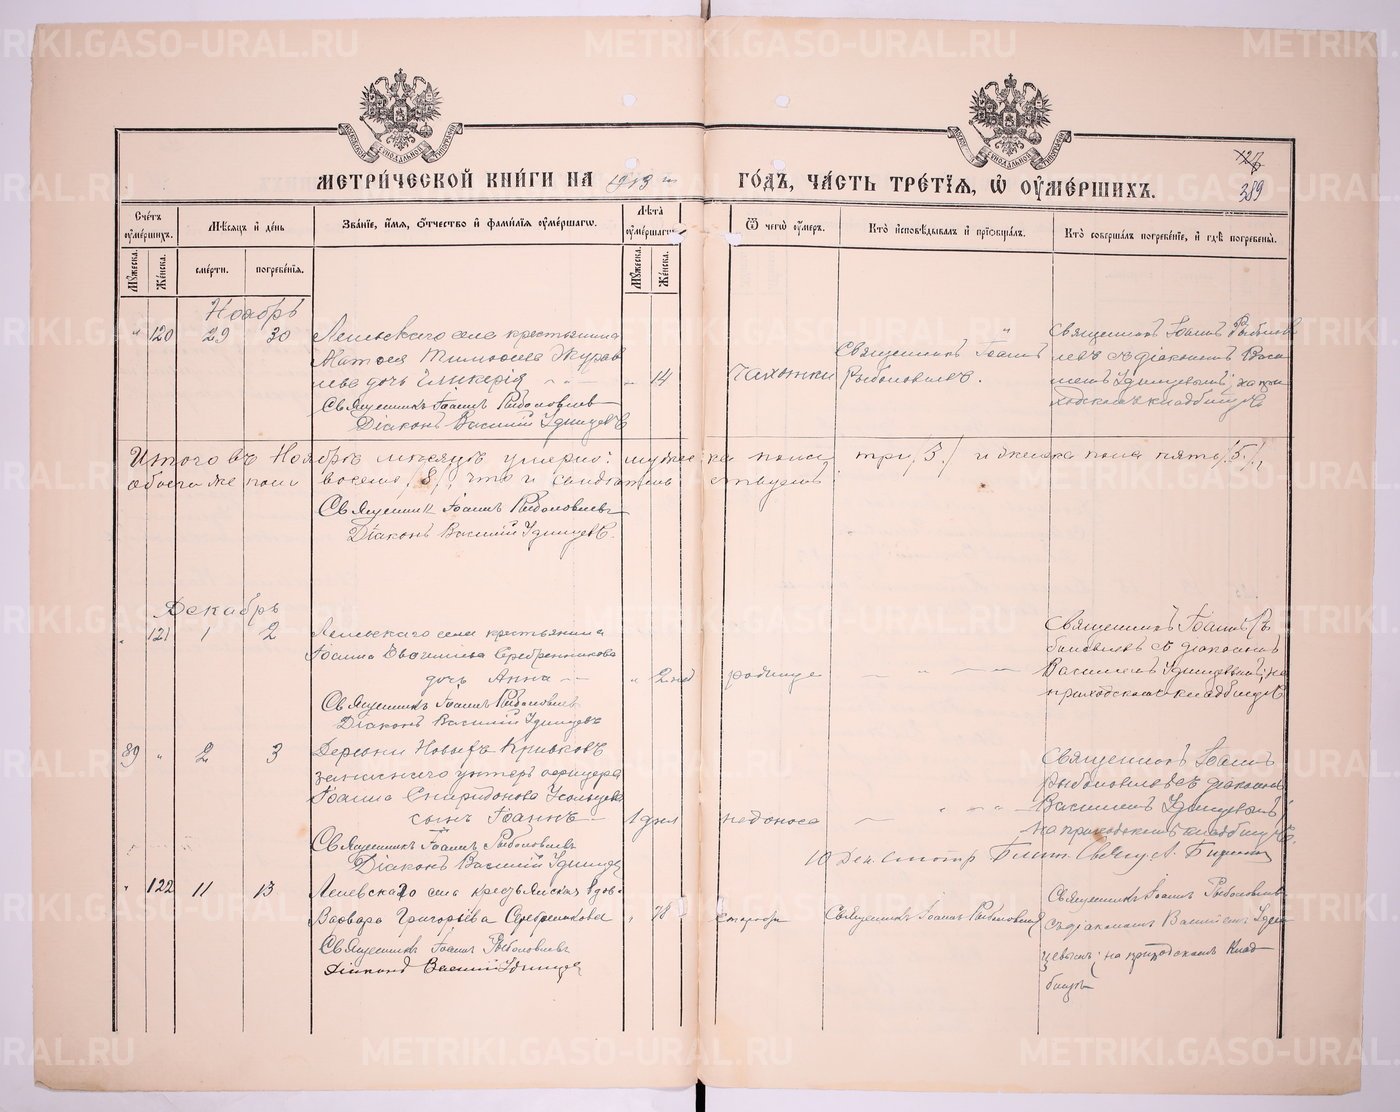 МЕТРИ́ЧЕСКОЙ КНИ́ГИ НА 1913 го ГО́ДЪ, ЧА́СТЬ ТРЕ́ТІЯ, Ѿ ОУМЕ́РШИХЪ.
127
389
Сче́тъ оуме́ршихъ.
Му́жеска.
Же́нска.
Мѣсяцъ и день
сме́рти.
погребе́нія.
Зва́ніе, и́мя, о́тчество и фами́лія оуме́ршагѡ.
Лѣта оуме́ршагѡ.
Му́жеска.
Же́нска.
Ѿ чегѡ̀ оу́меръ.
Кто̀ исповѣ́дывалъ и пріобща́лъ.
Кто̀ соверша́лъ погребе́ніе, и гдѣ̀ погребены̀.
Ноябрь
" 120 29 30
крестьянина
Матѳея Тимоѳеева Журав
лева дочь Гликерія " 14
Священникъ Іоаннъ Рыболовлевъ
Діаконъ Василій Удинцевъ
чахотки
Священникъ Іоаннъ
Рыболовлевъ.
Священникъ Іоаннъ Рыболов
левъ съ діакономъ Васи
ліемъ Удинцевымъ; на при
ходскомъ кладбищѣ
Итого въ Ноябрѣ мѣсяцѣ умерло: мужеска пола три /3/ и женска пола пять /5/,
обоего же пола восемь /8/, что и свидѣтельствуемъ
Священникъ Іоаннъ Рыболовлевъ
Діаконъ Василій Удинцевъ.
Декабрь
" 121 1 2
села крестьянина
Іоанна Серебренникова
дочь Анна " 2 нед
Священникъ Іоаннъ Рыболовлевъ
Діаконъ Василій Удинцевъ
родимца
Священникъ Іоаннъ Ры
боловлевъ съ діакономъ
Василіемъ Удинцевымъ; на
приходскомъ кладбищѣ
89 " 2 3
Деревни Новыхъ Кривковъ
запаснаго унтеръ офицера
Іоанна Спиридонова Усольцева
сынъ Іоаннъ 1 дня
Священникъ Іоаннъ Рыболовлевъ
Діаконъ Василій Удинцевъ
недоноса
Священникъ Іоаннъ
Рыболовлевъ съ діакономъ
Василіемъ Удинцевымъ;
на приходскомъ кладбищѣ.
10 Дек. смотр
" 122 11 13
села вдов.
Варвара Григорьева Серебренникова " 78
Священникъ Іоаннъ Рыболовлевъ
Діаконъ Василій Удинцевъ
старости
Священникъ Іоаннъ Рыболовлевъ
Священникъ Іоаннъ Рыболовлевъ
съ діакономъ Василіемъ Удин
цевымъ; на приходскомъ клад
бищѣ
METRIKI.GASO-URAL.RU